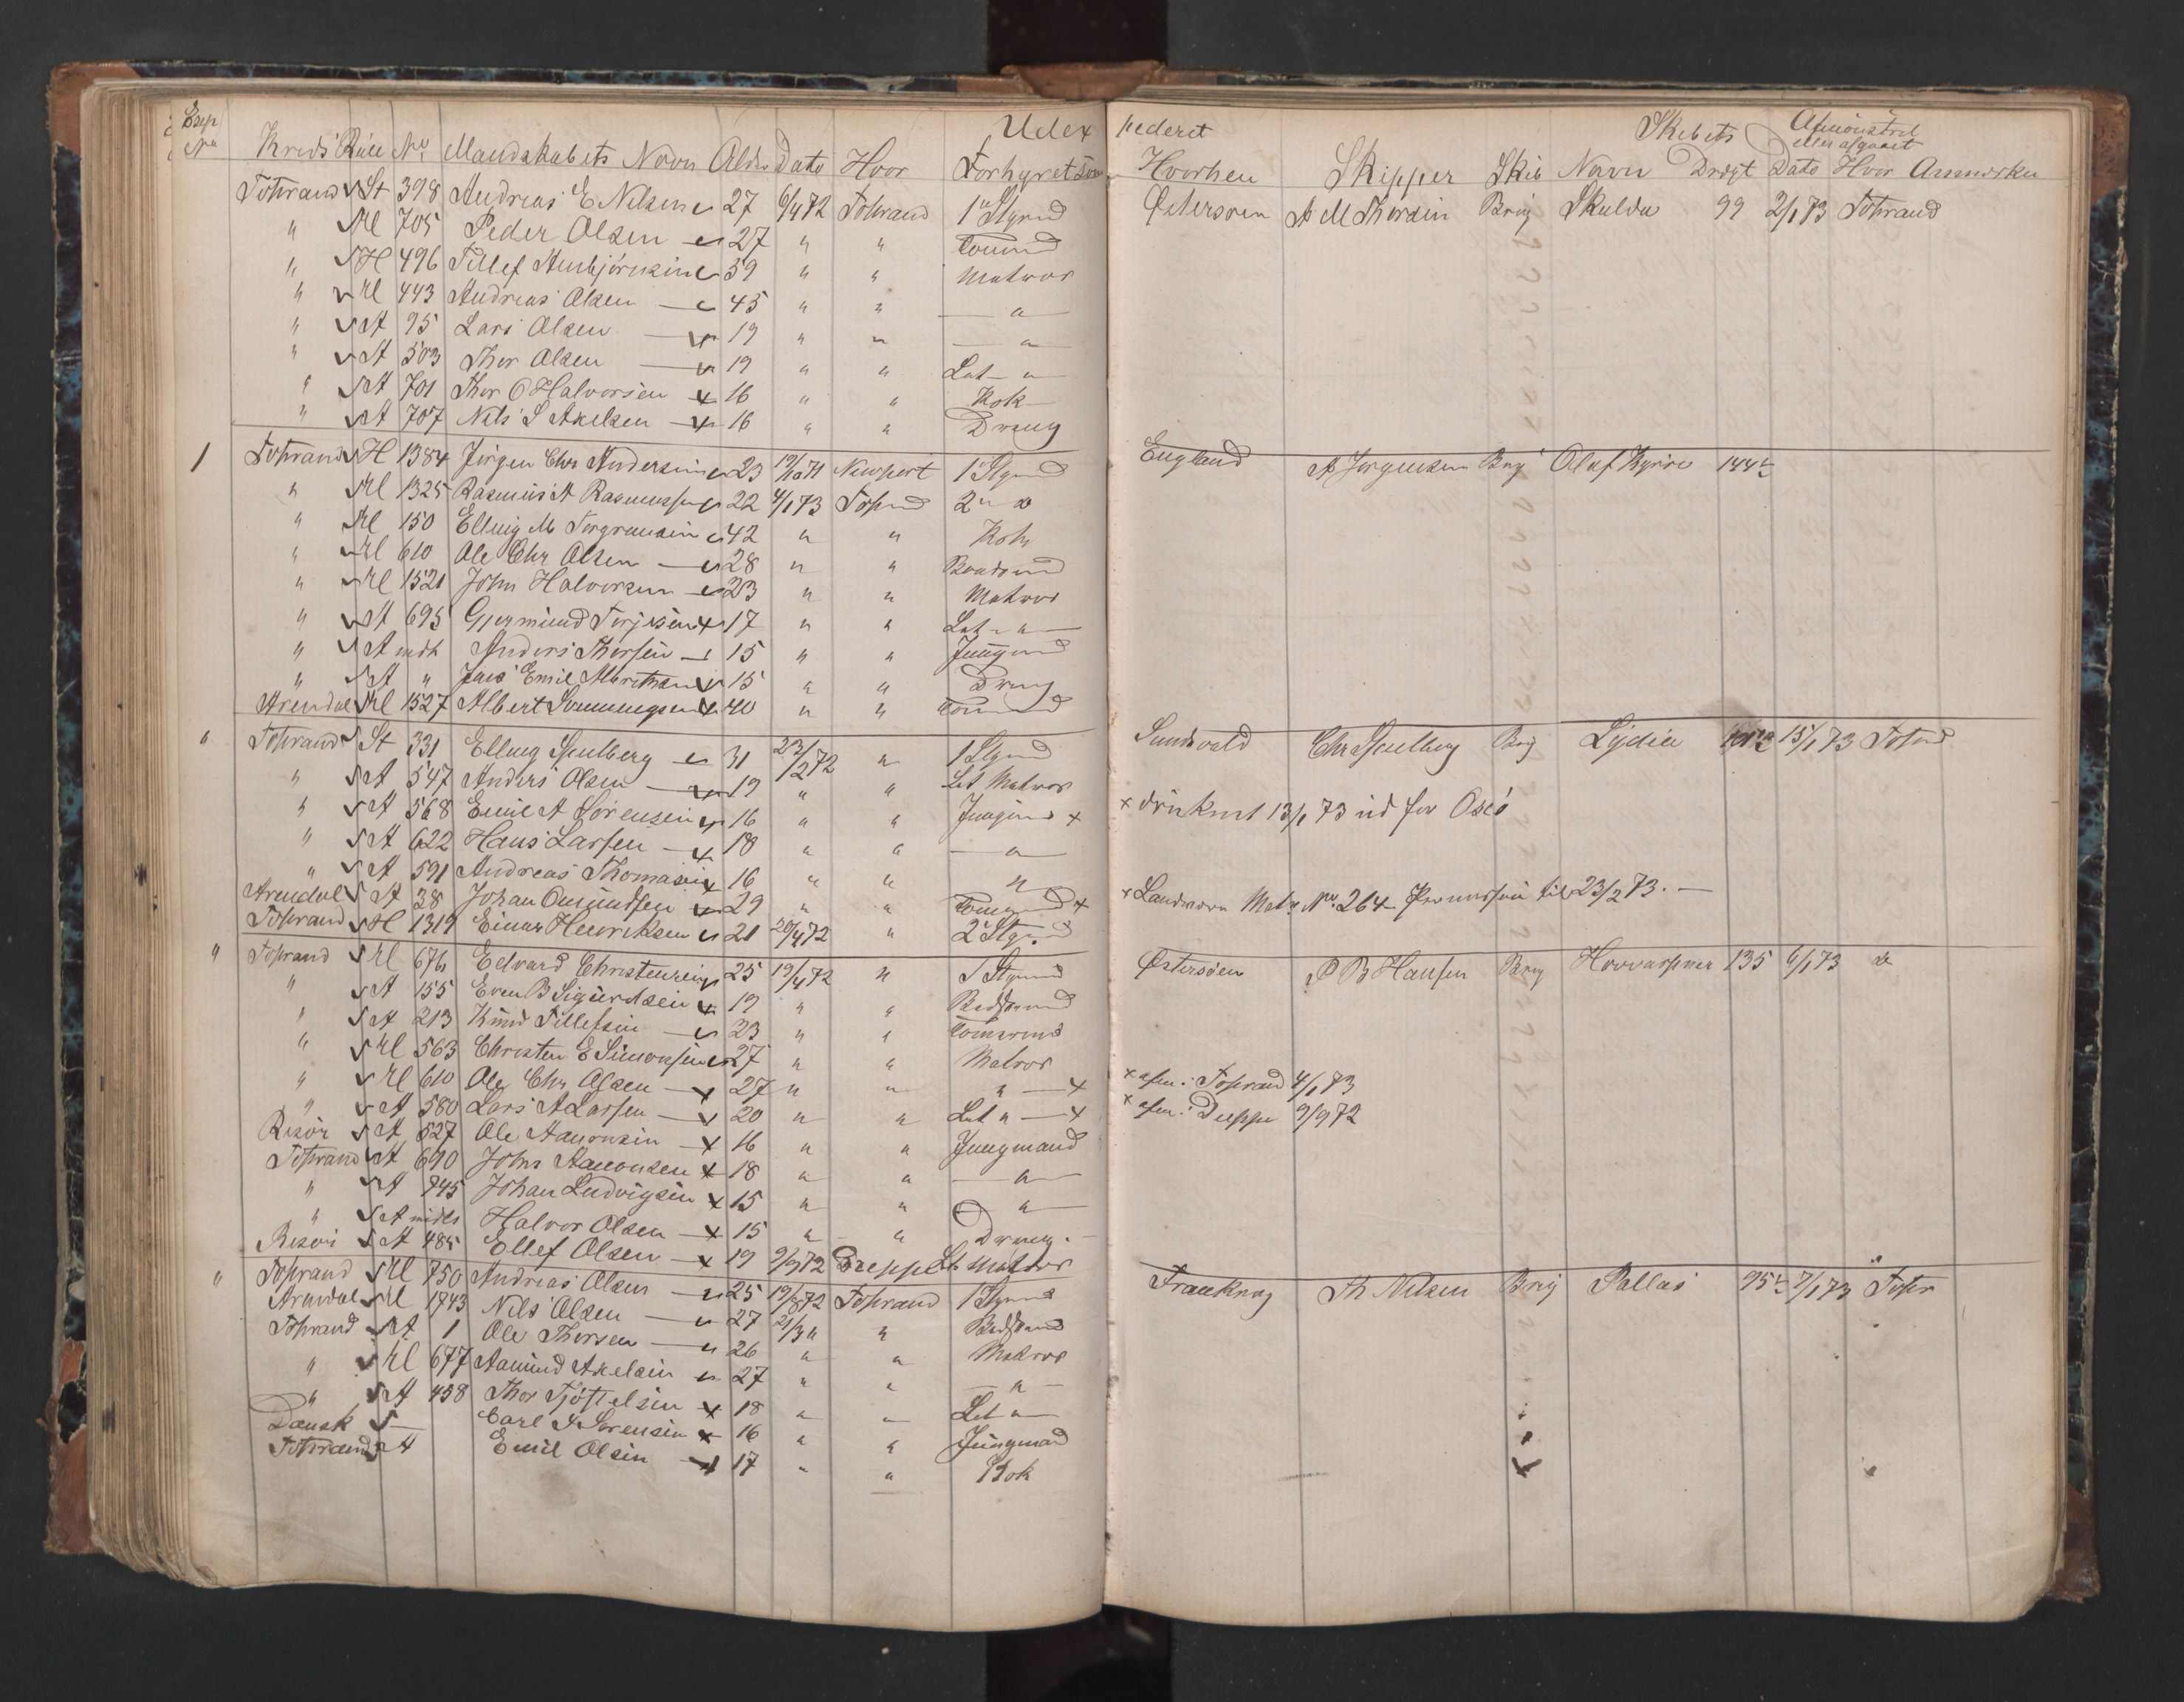 Udex pederet
Skibets Afmönstret eller afgaaet
Exp No Kreds Rulle No Mandskabets Navn Alder Dato Hvor Forhyret Som Hvorhen Skipper Skib Navn Drægt Dato Hvor Anmerkn
Tvstrand St 398 Andreas E Nilsen 27 6/4 72 Tvstrand 1ste Styrmd Østersøen A M Thorsen Brig Skulda 99 2/1 73 Tvstrand
" Hl 705 Peder Olsen 27 " " Tømmd
" H 496 Tillef Anbjörnsen 39 " " Matros
" Hl 443 Andreas Olsen 45 " " "
" A 95 Lars Olsen 19 " " "
" A 503 Thor Olsen 19 " " Let "
" A 701 Thor O Halvorsen 16 " " Kok
" A 707 Nils S Axelsen 16 " " Dreng
1 Tvstrand H 1384 Jörgen Chr Andersen 23 19/10 71 Newport 1 Styrmd England A Jörgensen Brig Olaf Kyrre 144½
" Hl 1325 Rasmus A Rasmussen 22 4/1 73 Tvstrand 2 do
" Hl 150 Elling M Torgrimsen 42 " " Kok
" Hl 610 Ole Chr Olsen 28 " " Baadsmd
" Hl 1521 John Halvorsen 23 " " Matros
" A 695 Gjermund Terjesen 17 " " Let "
" A indh Anders Thorsen 15 " " Jungmd
" A " Jens Emil Mortensen 15 " " Dreng
Arendal Hl 1527 Albert Sonmungsen 40 " " Tømmd
" Tvstrand St 331 Elling Spilberg 31 23/12 72 " 1 Styrmd Sundsvald Chr Spilberg Brig Lydia 15/1 73 Tvstrand
" A 547 Anders Olsen 19 " " Let Matros
" A 568 Emil A Sörensen 16 " " Jungmd x x druknet 13/1 73 ud for Osÿ
" A 622 Hans Larsen 18 " " "
" A 591 Andreas Thomasen 16 " " "
Arendal A 38 Johan Omundsen 29 " " Tømmd x x Landværn Matr No 264 Permission til 23/2 73.
Tvstrand H 1319 Einar Henriksen 21 20/4 72 " 2 Styrmd
" Tvstrand Hl 676 Edvard Christensen 25 19/4 72 " 1 Styrmd Østersøen P B Hansen Brig Hovvarpner 135 6/1 73 do
" A 155 Even B Sigurdsen 19 " " Bødtmd
" A 213 Knud Tillefsen 23 " " Tømmermd
" Hl 563 Christen E Simonsen 27 " " Matros
" Hl 610 Ole Chr Olsen 27 " " " x x afm. i Tvstrand 4/1 73
" A 580 Lars A Larsen 20 " " Let " x x afm. i Dieppe 9/9 72
Risör A 527 Ole Aanonsen 16 " " Jungmand
Tvstrand A 690 John Aanonsen 18 " " "
" A 745 Johan Ludvigsen 15 " " "
" A indh Halvor Olsen 15 " " Dreng.
Risör A 485 Ellef Olsen 19 9/9 72 Dieppe Lt Matros
" Tvstrand Hl 750 Andreas Olsen 25 19/8 72 Tvstrand 1 Styrmd Frankrig Th Nilsen Brig Pallas 95½ 7/1 73 Tvstr
Arendal Hl 1743 Nils Olsen 27 21/3 " " Bødtmd
Tvstrand A 1 Ole Thorsen 26 " " Matros
" Hl 677 Aamund Axelsen 27 " " "
" A 458 Thor Tjöstelsen 18 " " Let "
Dansk Carl S Sörensen 16 " " Jungmad
Tvstrand A Emil Olsen 17 " " Kok